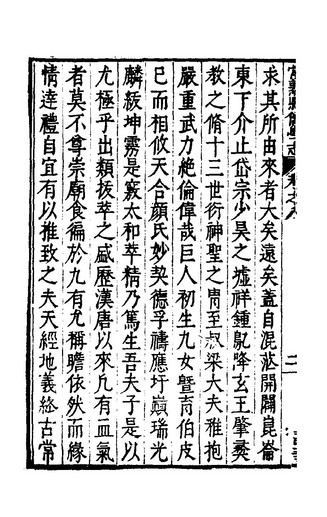 求其所由來者大矣遠矣蓋自混茫開闢崑崙
東下介止岱宗少昊之墟祥鍾鳦降玄王肇彝
教之脩十三世衍神聖之冑至叔梁大夫雅抱
嚴重武力絶倫偉哉巨人初生九女曁育伯皮
已而相攸天合顔氏妙契德孚禱應圩巔瑞光
麟紱坤霧是竅太和萃精乃篤生吾夫子是以
尤極乎出類拔萃之盛歷漢唐以來凢有血氣
者莫不尊崇廟食徧於九有尤稱瞻依然而緣
情達禮自宜有以推致之夫天經地義終古常